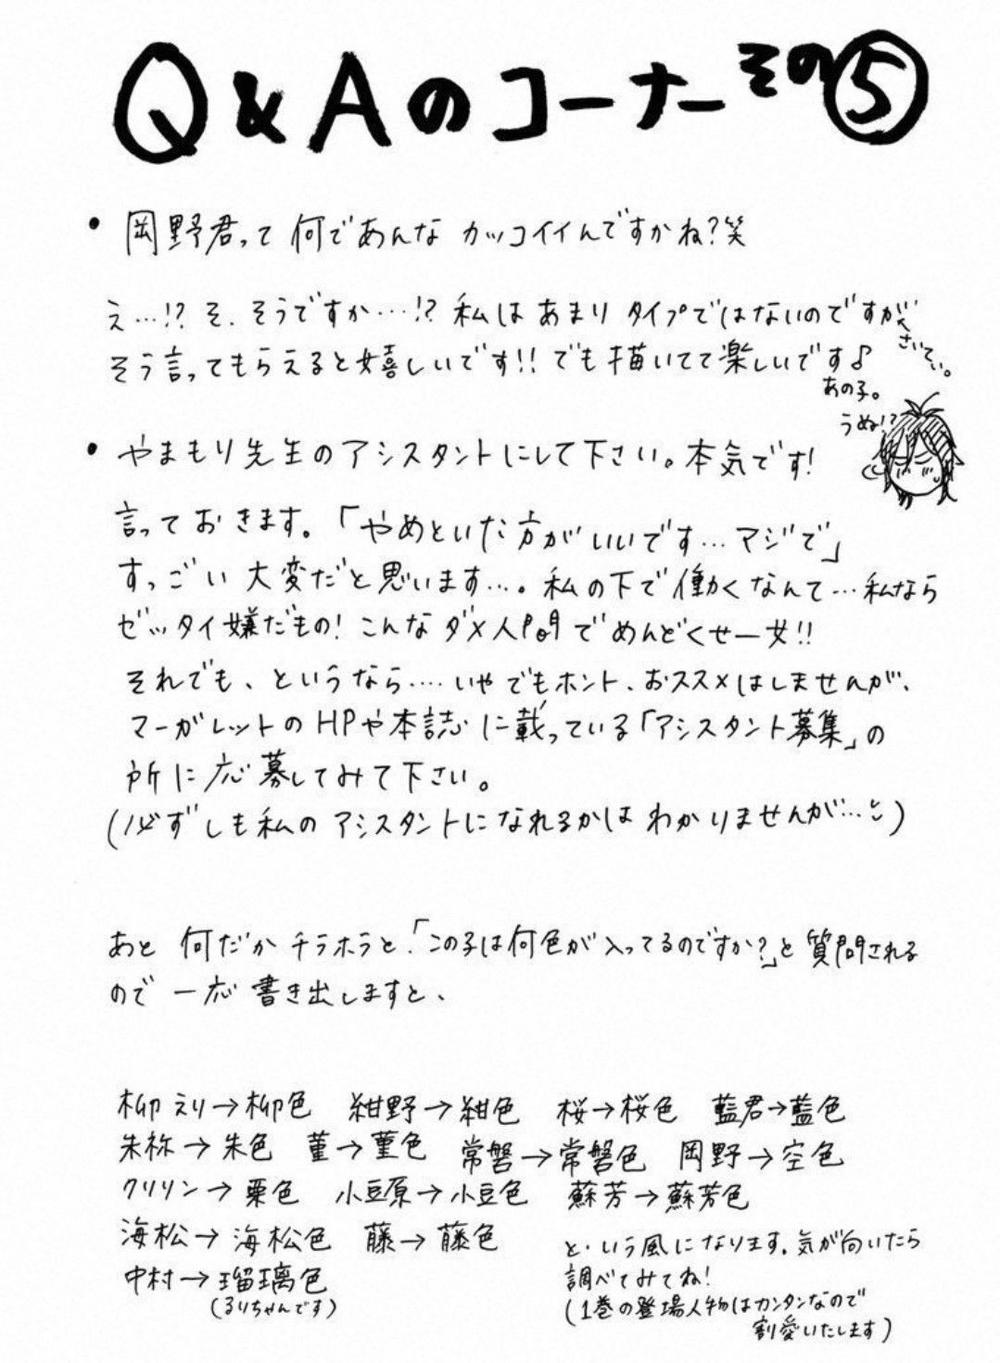 Q&Aのコーナーその⑤
・岡野君って何であんなカッコイイんですかね?笑
え…!?そ、そうですか…!?私はあまりタイプではないのですが
そう言ってもらえると嬉しいです!!でも描いてて楽しいです♪
さいてい。
あの子。
うぬ!?
・やまもり先生のアシスタントにして下さい。本気です!
言っておきます。「やめといた方がいいです…マジで」
すっごい大変だと思います…。私の下で働くなんて…私なら
ゼッタイ嫌だもの!こんなダメ人間でめんどくせー女!!
それでも、というなら….いやでもホント、おススメはしませんが、
マーガレットのHPや本誌に載っている「アシスタント募集」の
所に応募してみて下さい。
(必ずしも私のアシスタントになれるかはわかりませんが…)
あと何だかチラホラと、「この子は何色が入ってるのですか?」と質問される
ので一応書き出しますと、
柳えり→柳色 紺野→紺色 桜→桜色 藍君→藍色
朱祢→朱色 菫→菫色 常磐→常磐色 岡野→空色
クリリン→栗色 小豆原→小豆色 蘇芳→蘇芳色
海松→海松色 藤→藤色
中村→瑠璃色
(るりちゃんです)
と・いう風になります。気が向いたら
調べてみてね!
(1巻の登場人物はカンタンなので
割愛いたします)